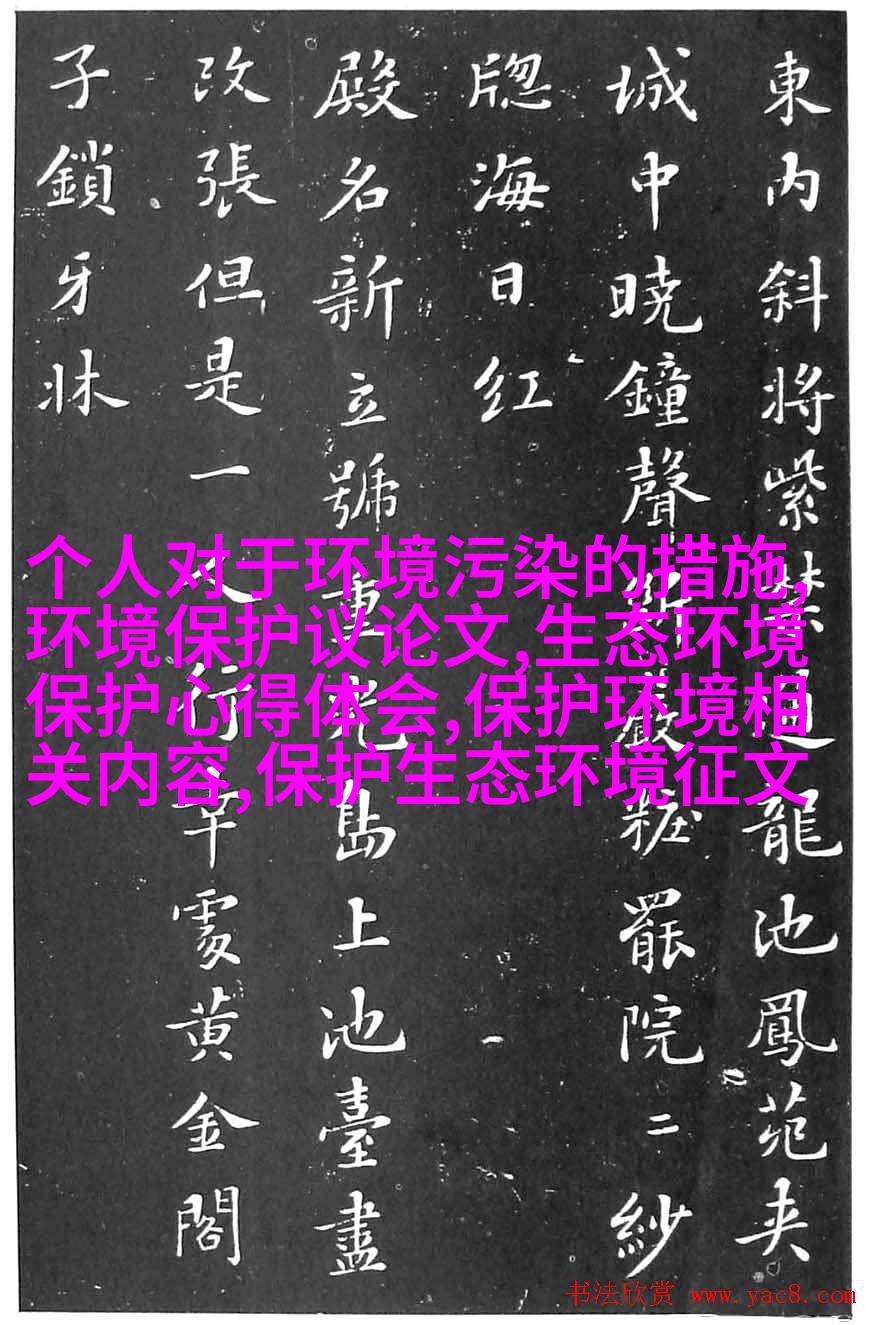 東内斜將紫禁通龍池鳳苑夾
城中曉鐘聲斷嚴粧罷院二紗
牎海日紅
殿名新立號重光島上池臺盡
改張但是一人行幸處黄金閣
子鎖牙牀
个人对于环境污染的措施,
环境保护议论文,生态环境
保护心得体会,保护环境相
关内容,保护生态环境征文
书法欣赏 www.yac8.com